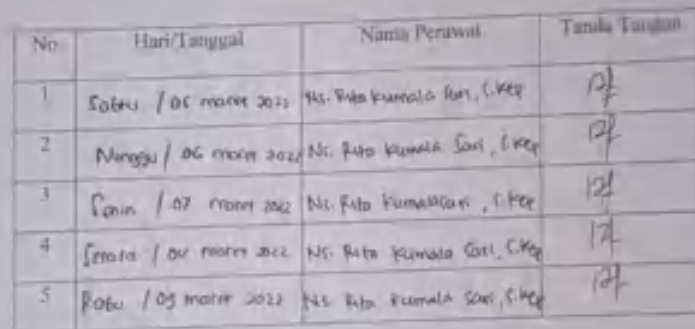 No Hari/Tanggal Nama Perawat Tanda Tangan
1 Sabtu / 05 maret 2022 Ns. Rita kumala Sari, S.Kep
2 Minggu / 06 maret 2022 Ns. Rita Kumala Sari, S.Kep
3 Senin / 07 maret 2022 Ns. Rita Kumalasari, S.Kep
4 Selasa / 08 maret 2022 Ns. Rita Kumala Sari, S.Kep
5 Rabu / 09 maret 2022 Ns. Rita Kumala Sari, S.Kep